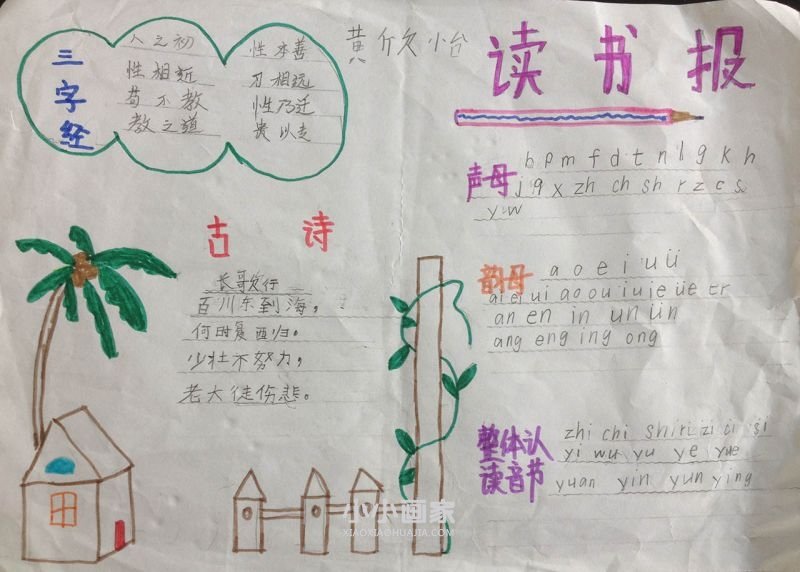 三字经
人之初 性本善
性相近 习相远
苟不教 性乃迁
教之道 贵以专
黄欣怡
读书报
声母 b p m f d t n l g k h
j q x zh ch sh r z c s
y w
古诗
长歌行
百川东到海，
何时复西归。
少壮不努力，
老大徒伤悲。
韵母 a o e i u ü
ai ei ui ao ou iu ie üe er
an en in un ün
ang eng ing ong
整体认读音节
zhi chi shi ri zi ci si
yi wu yu ye yue
yuan yin yun ying
小小画家
XIAOXIAOHUAJIA.COM